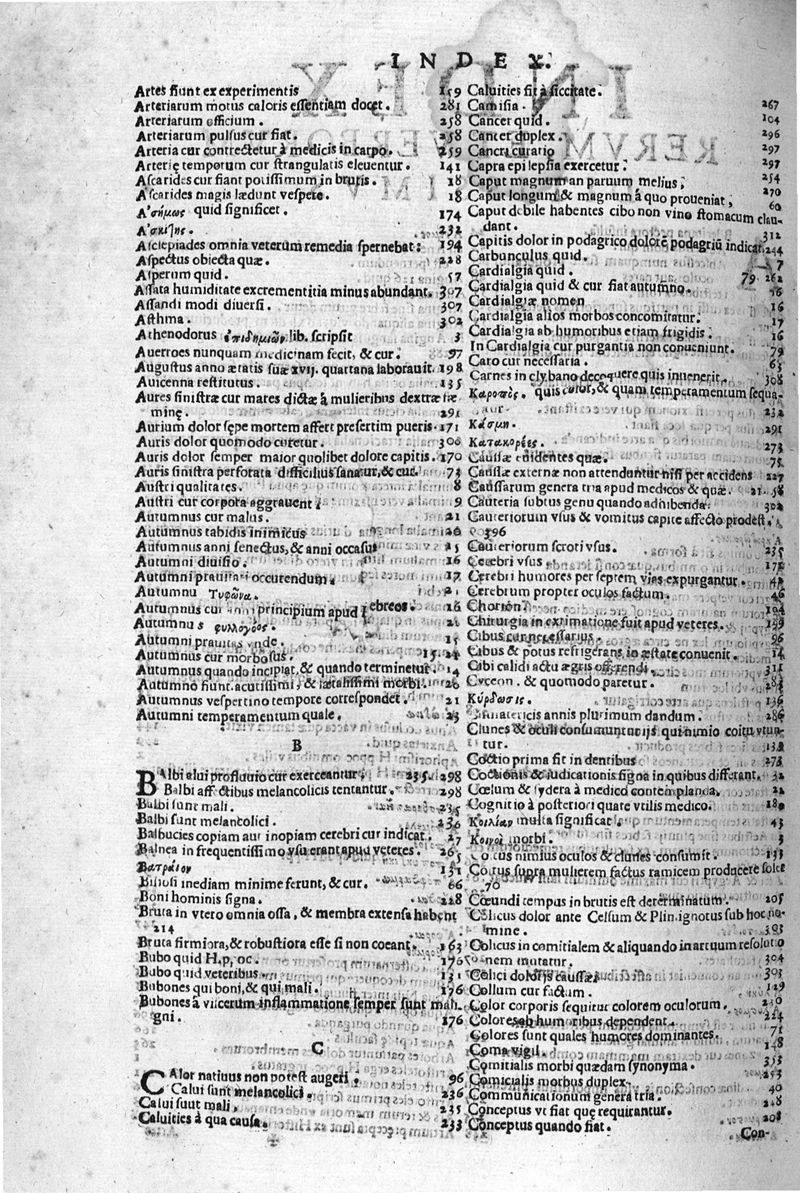 INDEX.
Artes fiunt ex experimentis 159
Arteriarum motus caloris essentiam docet. 281
Arteriarum officium. 258
Arteriarum pulsus cur fiat. 258
Arteria cur contrectetur à medicis in carpo. 259
Arterię temporum cur strangulatis eleuentur. 141
Ascarides cur fiant potissimum in brutis. 18
Ascarides magis lædunt vespere. 18
quid significet. 174
232
Asclepiades omnia veterum remedia spernebat: 194
Aspectus obiecta quæ. 228
Asperum quid. 57
Assata humiditate excrementitia minus abundant. 307
Assandi modi diuersi. 307
Asthma. 302
Athenodorus ἐπιδημιῶν lib. scripsit 3
Auerroes nunquam medicinam fecit, & cur. 97
Augustus anno ætatis suæ xvij. quartana laborauit. 198
Auicenna restitutus. 135
Aures sinistræ cur mares dictæ à mulieribus dextræ fæ
minę. 291
Aurium dolor sępe mortem affert presertim pueris. 171
Auris dolor quomodo curetur. 306
Auris dolor semper maior quolibet dolore capitis. 170
Auris sinistra perforata difficilius sanatur, & cur. 74
Austri qualitates. 8
Austri cur corpora aggrauent. 9
Autumnus cur malus. 21
Autumnus tabidis inimicus 20
Autumnus anni senectus, & anni occasus 25
Autumni diuisio. 16
Autumni prauitati occurendum. 17
Autumnu Τυφῶνα. 21
Autumnus cur anni principium apud Hebreos. 16
Autumnus φυλλοχόος.
Autumni prauitas vnde. 15
Autumnus cur morbosus. 15. 24
Autumnus quando incipiat, & quando terminetur. 14
Autumno fiunt acutissimi, & lætalissimi morbi. 20
Autumnus vespertino tempore correspondet. 21
Autumni temperamentum quale. 23
B
BAlbi alui profluuio cur exerceantur. 235. 298
Balbi affectibus melancolicis tentantur. 298
Balbi sunt mali. 235
Balbi sunt melancolici. 236
Balbucies copiam aut inopiam cerebri cur indicat. 27
Balnea in frequentissimo vsu erant apud veteres. 265
131
Biliosi inediam minime ferunt, & cur. 66
Boni hominis signa. 228
Bruta in vtero omnia ossa, & membra extensa habent
214
Bruta firmiora, & robustiora esse si non coeant. 163
Bubo quid Hyppoc. 176
Bubo quid veteribus. 131
Bubones qui boni, & qui mali. 176
Bubones à viscerum inflammatione semper sunt mali
gni. 176
C
CAlor natiuus non potest augeri. 96
Calui sunt melancolici. 236
Calui suut mali. 235
Caluities à qua causa. 233
Caluities fit à siccitate.
Camisia. 267
Cancer quid. 104
Cancer duplex. 296
Cancri curatio 297
Capra epilepsia exercetur. 297
Caput magnum an paruum melius. 254
Caput longum & magnum à quo proueniat, 270
Caput debile habentes cibo non vino stomacum clau 60
dant.
Capitis dolor in podagrico dolore podagriū indicat. 312
Carbunculus quid. 244
Cardialgia quid. 7
Cardialgia quid & cur fiat autumno. 79 262
Cardialgiæ nomen 16
Cardialgia alios morbos concomitatur. 16
Cardialgia ab humoribus etiam frigidis. 17
In Cardialgia cur purgantia non conueniunt. 79
Caro cur necessaria. 63
Carnes in clybano decoquere quis inuenerit. 308
quis color, & quam temperamentum sequa
tur. 232
Κάσμη. 291
273
Causæ euidentes quæ. 75
Causæ externæ non attenduntur nisi per accidens 227
Causarum genera tria apud medicos & quæ. 21. 58
Cauteria subtus genu quando adhibenda. 302
Cauteriorum vsus & vomitus capite affecto prodest.
296
Cauteriorum scroti vsus. 235
Cerebri vsus
Cerebri humores per septem vias expurgantur. 42
Cerebrum propter oculos factum. 46
Chorion 194
Chirurgia in extimatione fuit apud veteres. 199
Cibus cur necessarius. 96
Cibus & potus refrigerans in æstate conuenit. 14
Cibi calidi actu ægris offerendi. 311
Cyceon. & quomodo paretur. 283
Κύρδωσις. 136
Climatericis annis plurimum dandum. 286
Clunes & oculi consumuntur ijs qui nimio coitu vtun
tur. 132
Coctio prima fit in dentibus 273
Coctionis & iudicationis signa in quibus differant. 32
Cœlum & sydera à medico contemplanda. 22
Cognitio à posteriori quare vtilis medico. 180
Κοιλίαν multa significat. 43
Κοινοὶ morbi. 3
Coitus nimius oculos & clunes consumit. 133
Coitus supra mulierem factus ramicem producere solet
70
Coeundi tempus in brutis est determinatum. 205
Colicus dolor ante Celsum & Plin. ignotus sub hoc no-
mine. 303
Colicus in comitialem & aliquando in artuum resolutio
nem mutatur. 304
Colici doloris causæ. 303
Collum cur factum. 129
Color corporis sequitur colorem oculorum. 230
Colores ab humoribus dependent. 224
Colores sunt quales humores dominantes. 71
Coma vigil. 148
Comitialis morbi quædam synonyma. 353
Comicialis morbus duplex. 253
Communicationum genera tria. 40
Conceptus vt fiat quę requirantur. 218
Conceptus quando fiat. 208
Con-